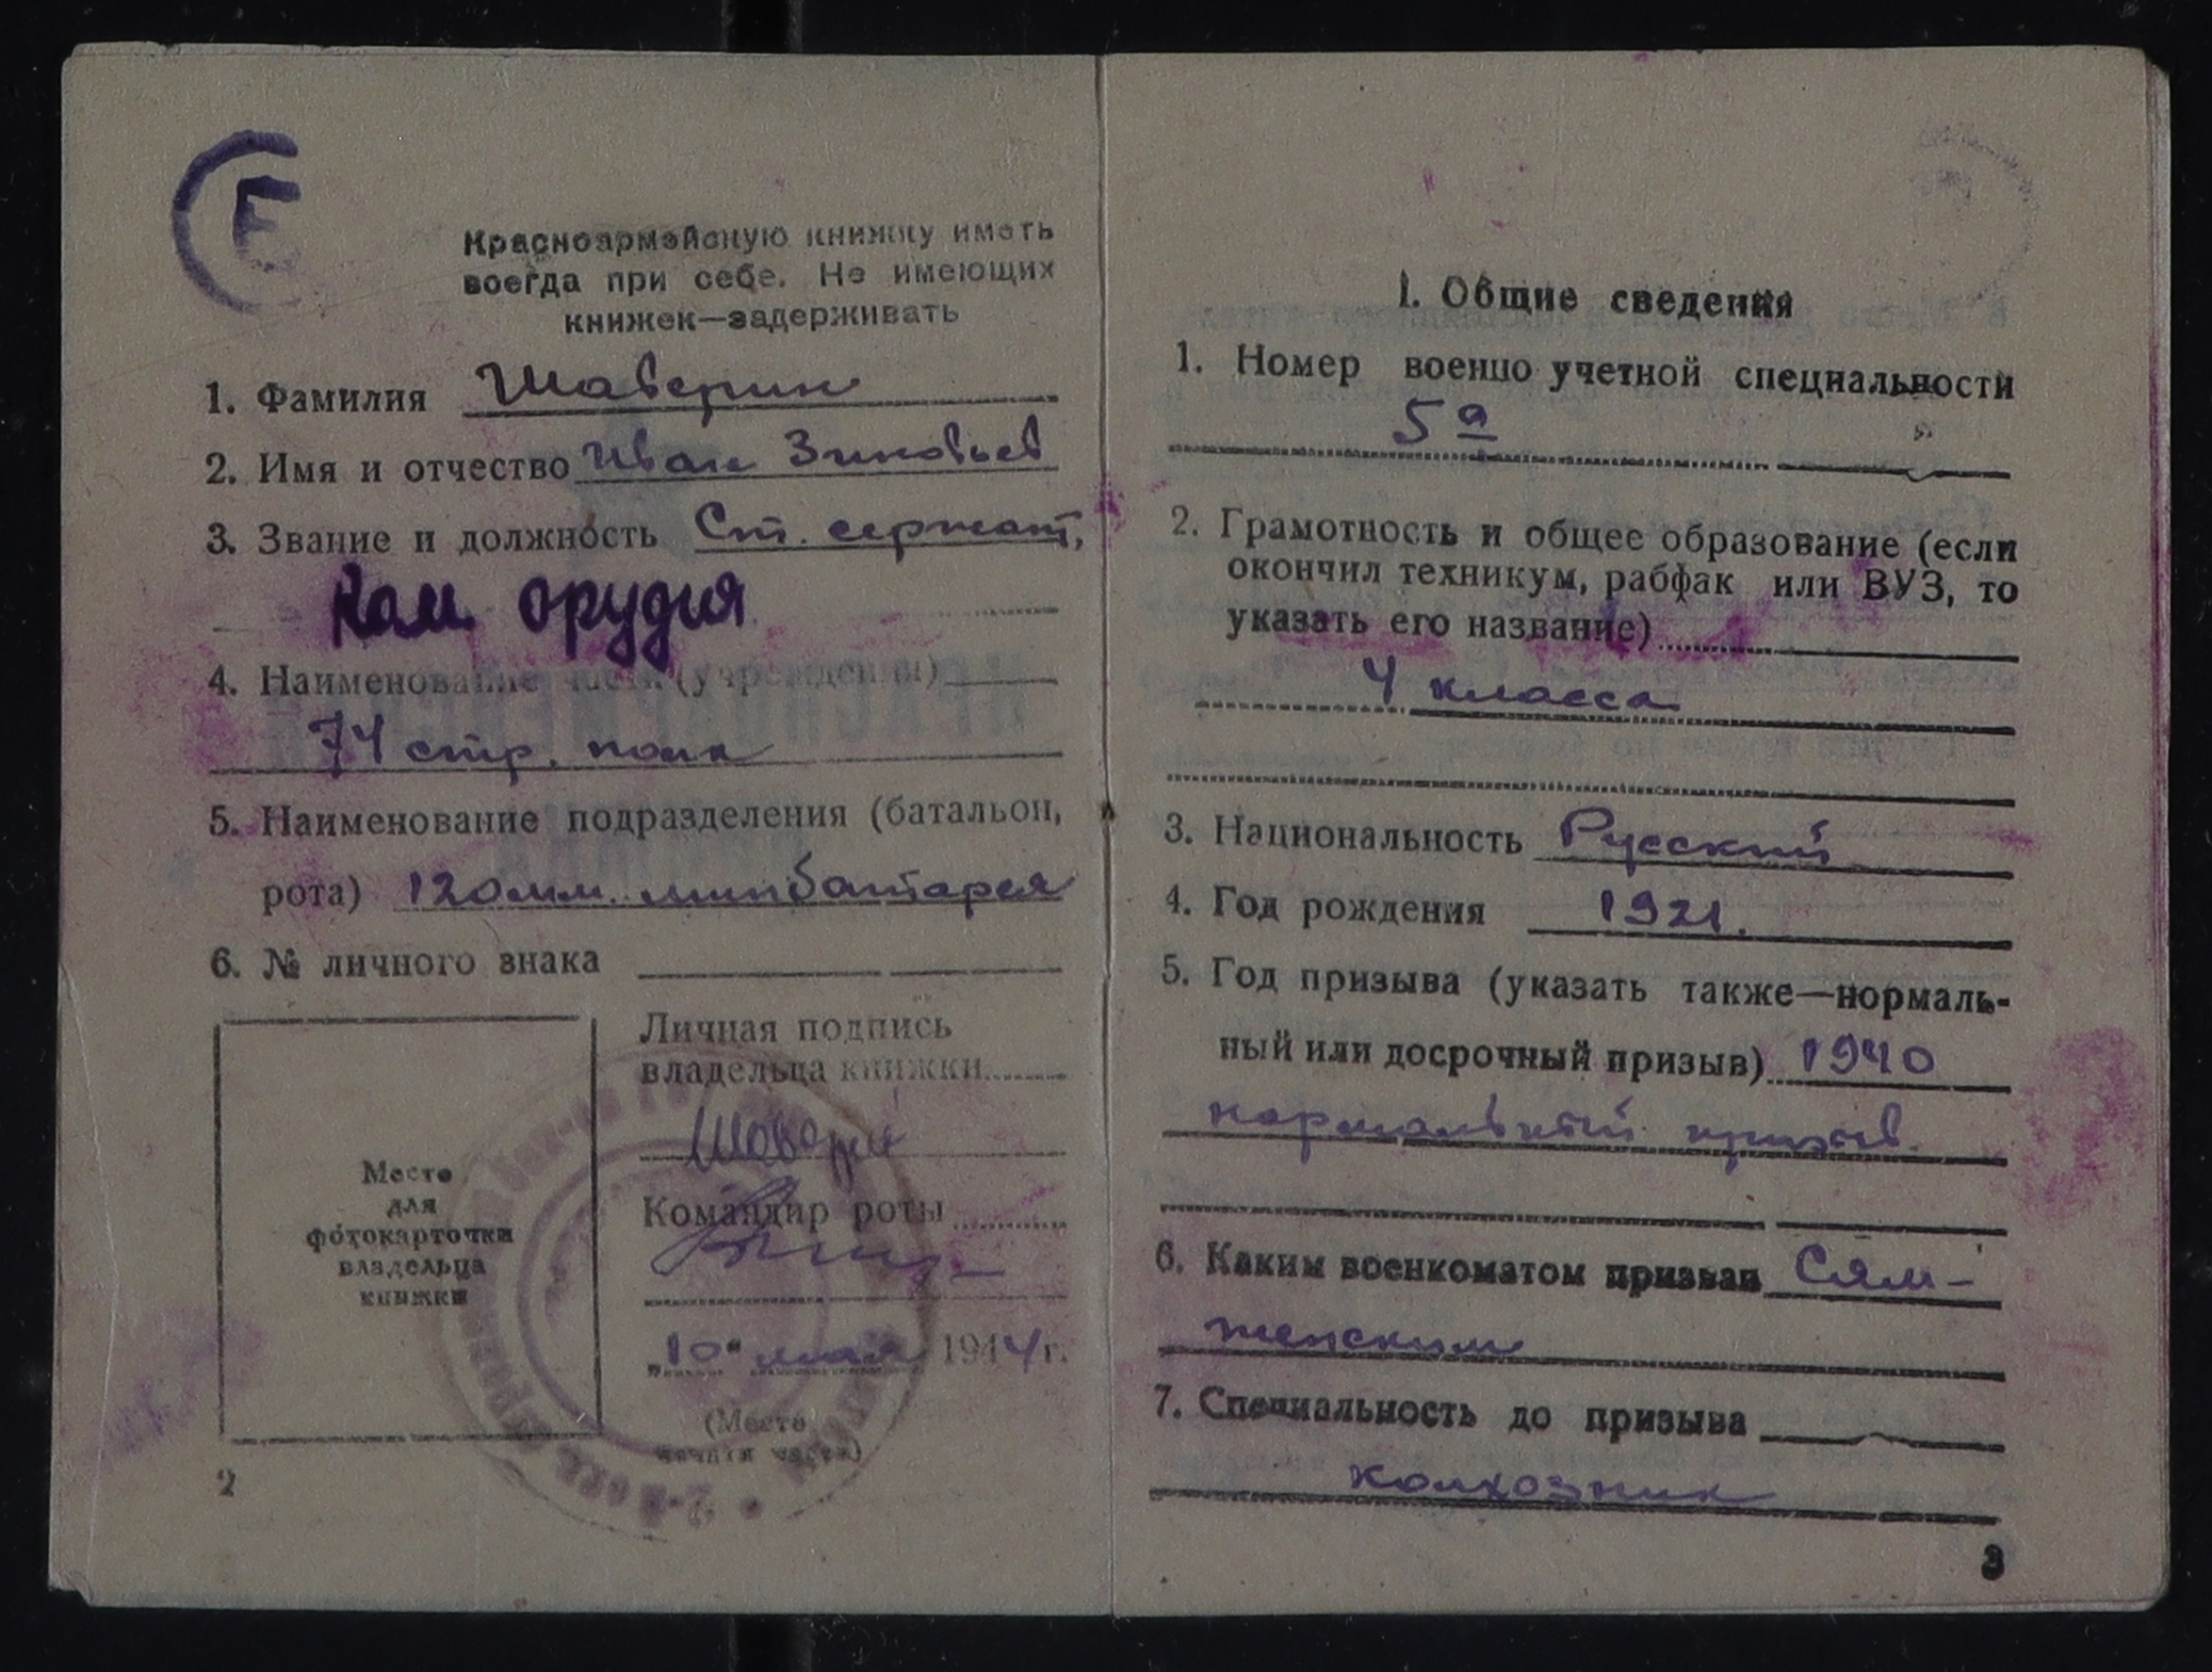 Е
Красноармейскую книжку иметь
всегда при себе. Не имеющих
книжек—задерживать
1. Фамилия Шаверин
2. Имя и отчество Иван Зиновьев
3. Звание и должность Ст. сержант,
Ком. орудия
4. Наименование части (учреждения)
74 стр. полк
5. Наименование подразделения (батальон,
рота) 120 мм. минбатарея
6. № личного знака
Личная подпись
владельца книжки
Шаверин
Командир роты
„10“ мая 1944 г.
(Место
печати части)
Место
для
фотокарточки
владельца
книжки
2
I. Общие сведения
1. Номер военно учетной специальности
5а
2. Грамотность и общее образование (если
окончил техникум, рабфак или ВУЗ, то
указать его название)
4 класса
3. Национальность Русский
4. Год рождения 1921.
5. Год призыва (указать также—нормаль-
ный или досрочный призыв) 1940
нормальный призыв.
6. Каким военкоматом призван Сям-
женским
7. Специальность до призыва
колхозник
3